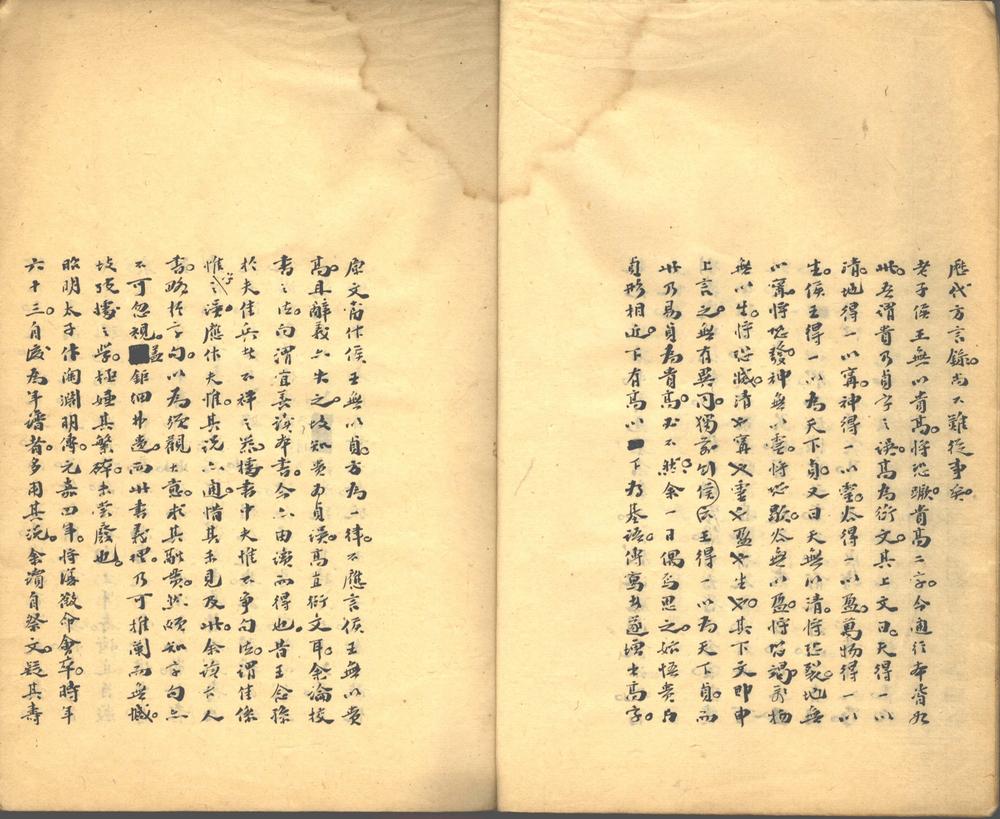 歷代方言錄。尚不難從事矣。
老子侯王無以貴高。將恐蹶。貴高二字。今通行本皆如
此。吾謂貴乃貞字之誤。高為衍文。其上文曰。天得一以
清。地得一以寧。神得一以靈。谷得一以盈。萬物得一以
生。侯王得一以為天下貞。又曰天無以清將恐裂。地無
以寧將恐發。神無以靈將恐歇。谷無以盈將恐竭。萬物
無以生。將恐滅。清寧靈盈生。其下文即申
上言之。無有異同。獨前列侯王得一以為天下貞。而
此乃易貞為貴高。必不然。余一日偶為思之。始悟貴與
貞形相近。下有高以下為基語。傳寫者遂增出高字。
原文當作侯王無以貞方為一律。不應言侯王無以貴
高。且辭義亦失之。故知貴而貞誤。高宜衍文耳。余論校
書之法。向謂宜善讀本書。今亦由讀而得也。昔王念孫
於夫佳兵者不祥之器。據書中夫惟不爭句法。謂佳係
惟字之誤。應作夫惟其說亦通。惜其未見及此。余讀古人
書。略於字句。以為須觀大意。求其融貫。然頗知字句亦
不可忽視。蓋鉅細並造。而此書義理。乃可推闡而無憾。
故攷據之學。極嫌其繁碎。未嘗廢也。
昭明太子作陶淵明傳。元嘉四年。將復徵命。會卒。時年
六十三。自後為年譜者。多用其說。余讀自祭文。疑其壽